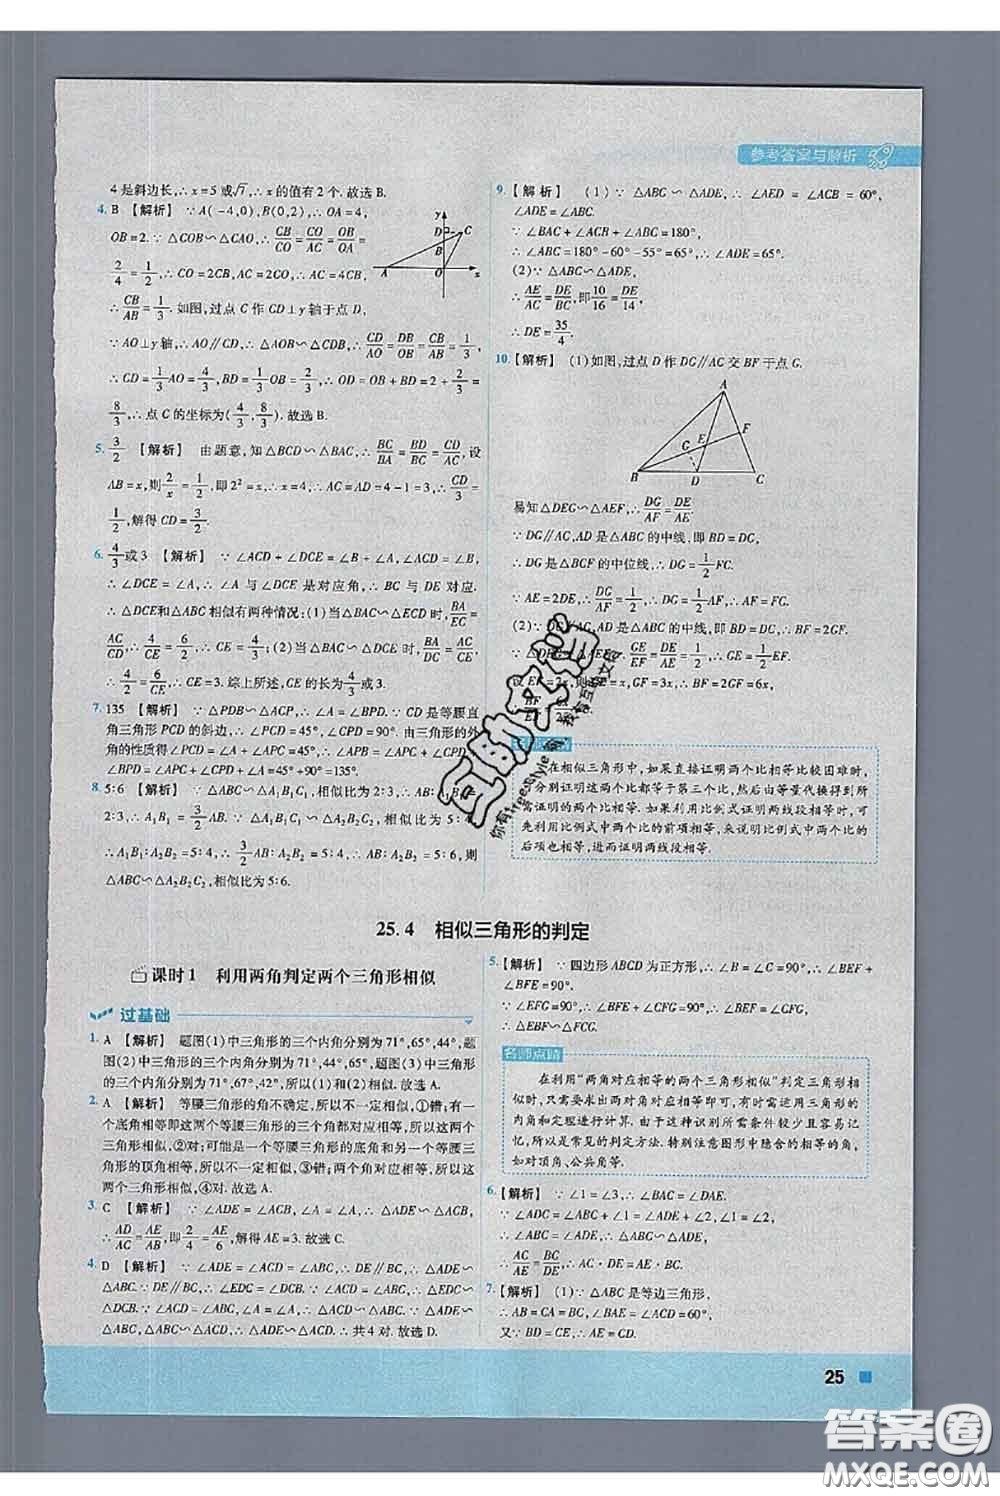 参考答案与解析
4是斜边长,∴x=5或√7,∴x的值有2个.故选B.
4. B 【解析】 ∵A(-4,0),B(0,2),∴OA=4,
OB=2.∵△COB∽△CAO,∴CB/CO=CO/AC=OB/OA=
2/4=1/2,∴CO=2CB,AC=2CO,∴AC=4CB,
∴CB/AB=1/3.如图,过点C作CD⊥y轴于点D,
∵AO⊥y轴,∴AO∥CD,∴△AOB∽△CDB,∴CD/AO=DB/OB=CB/AB=1/3,
∴CD=1/3AO=4/3,BD=1/3OB=2/3,∴OD=OB+BD=2+2/3=
8/3,∴点C的坐标为(4/3,8/3).故选B.
y
D
C
B
A
O
x
5. 3/2 【解析】 由题意,知△BCD∽△BAC,∴BC/BA=BD/BC=CD/AC,设
AB=x,则2/x=1/2,即2²=x,∴x=4,∴AD=4-1=3,∴CD/3=
1/2,解得CD=3/2.
6. 4/3或3 【解析】 ∵∠ACD+∠DCE=∠B+∠A,∠ACD=∠B,
∴∠DCE=∠A,∴∠A与∠DCE是对应角,∴BC与DE对应.
∴△DCE和△ABC相似有两种情况:(1)当△BAC∽△ECD时,BA/EC=
AC/CD,∴6/CE=4/2,∴CE=4/3;(2)当△BAC∽△DCE时,BA/DC=AC/CE,
∴4/2=6/CE,∴CE=3.综上所述,CE的长为4/3或3.
7. 135 【解析】 ∵△PDB∽△ACP,∴∠A=∠BPD.∵CD是等腰直
角三角形PCD的斜边,∴∠PCD=45°,∠CPD=90°.由三角形的外
角的性质得∠PCD=∠A+∠APC=45°,∴∠APB=∠APC+∠CPD+
∠BPD=∠APC+∠CPD+∠A=45°+90°=135°.
8. 5∶6 【解析】 ∵△ABC∽△A₁B₁C₁,相似比为2∶3,∴AB∶A₁B₁=
2∶3,∴A₁B₁=3/2AB.∵△A₁B₁C₁∽△A₂B₂C₂,相似比为5∶4,
∴A₁B₁∶A₂B₂=5∶4,∴3/2AB∶A₂B₂=5∶4,∴AB∶A₂B₂=5∶6,则
△ABC∽△A₂B₂C₂,相似比为5∶6.
9. 【解析】 (1)∵△ABC∽△ADE,∴∠AED=∠ACB=60°,
∠ADE=∠ABC.
∵∠BAC+∠ACB+∠ABC=180°,
∴∠ABC=180°-60°-55°=65°,∴∠ADE=65°.
(2)∵△ABC∽△ADE,
∴AE/AC=DE/BC,即10/16=DE/14,
∴DE=35/4.
10. 【解析】 (1)如图,过点D作DG∥AC交BF于点G.
A
F
E
G
B
D
C
易知△DEG∽△AEF,∴DG/AF=DE/AE.
∵DG∥AC,AD是△ABC的中线,即BD=DC,
∴DG是△BCF的中位线,∴DG=1/2FC.
∵AE=2DE,∴DG/AF=1/2,∴DG=1/2AF,∴AF=FC.
(2)∵DG∥AC,AD是△ABC的中线,即BD=DC,∴BF=2GF.
∴GE/EF=DE/AE=1/2,∴GE=1/2EF.
GF=3x,∴BF=2GF=6x,
在相似三角形中,如果直接证明两个比相等比较困难时,可
分别证明这两个比都等于第三个比,然后由等量代换得到所
需证明的两个比相等.如果利用比例式证明两线段相等时,可
先利用比例式中两个比的前项相等,来说明比例式中两个比的
后项也相等,进而证明两线段相等.
25.4 相似三角形的判定
课时1 利用两角判定两个三角形相似
过基础
1. A 【解析】 题图(1)中三角形的三个内角分别为71°,65°,44°,题
图(2)中三角形的三个内角分别为71°,44°,65°,题图(3)中三角形的
三个内角分别为71°,67°,42°,所以(1)和(2)相似.故选A.
2. A 【解析】 等腰三角形的角不确定,所以不一定相似,①错;有一
个底角相等即这两个等腰三角形的三个角都对应相等,所以这两
个三角形相似,②对;可能是一个等腰三角形的底角和另一个等腰三
角形的顶角相等,所以不一定相似,③错;两个直角三角形都有一个
直角和一个锐角相等,所以相似,④对.故选A.
3. C 【解析】 ∵∠ADE=∠ACB,∠A=∠A,∴△ADE∽△ACB,
∴AD/AC=AE/AB,即2/4=AE/6,解得AE=3.故选C.
4. D 【解析】 ∵∠ADE=∠ACD=∠ABC,∴DE∥BC,∴△ADE∽
△ABC.∵DE∥BC,∴∠EDC=∠DCB.∵∠ACD=∠ABC,∴△EDC∽
△DCB.∵∠ADE=∠ACD,∠A=∠A,∴△ADE∽△ACD.∵△ADE∽
△ABC,△ADE∽△ACD,∴△ABC∽△ACD.∴共4对.故选D.
5. 【解析】 ∵四边形ABCD为正方形,∴∠B=∠C=90°,∴∠BEF+
∠BFE=90°.
∵∠EFG=90°,∴∠BFE+∠CFG=90°,∴∠BEF=∠CFG,
∴△EBF∽△FCG.
名师点睛
在利用“两角对应相等的两个三角形相似”判定三角形相
似时,只需要求出两对角对应相等即可,有时需运用三角形的
内角和定理进行计算.由于这种识别所需条件较少且容易记
忆,所以是常见的判定方法.特别注意图形中隐含的相等的角,
如对顶角、公共角等.
6. 【解析】 ∵∠1=∠3,∴∠BAC=∠DAE.
∵∠ADC=∠ABC+∠1=∠ADE+∠2,∠1=∠2,
∴∠ABC=∠ADE,∴△ABC∽△ADE,
∴AC/AE=BC/DE,∴AC·DE=AE·BC.
7. 【解析】 (1)∵△ABC是等边三角形,
∴AB=CA=BC,∠BAE=∠ACD=60°,
又∵BD=CE,∴AE=CD.
25
你有freestyle吗
答案圈
MXQE.COM